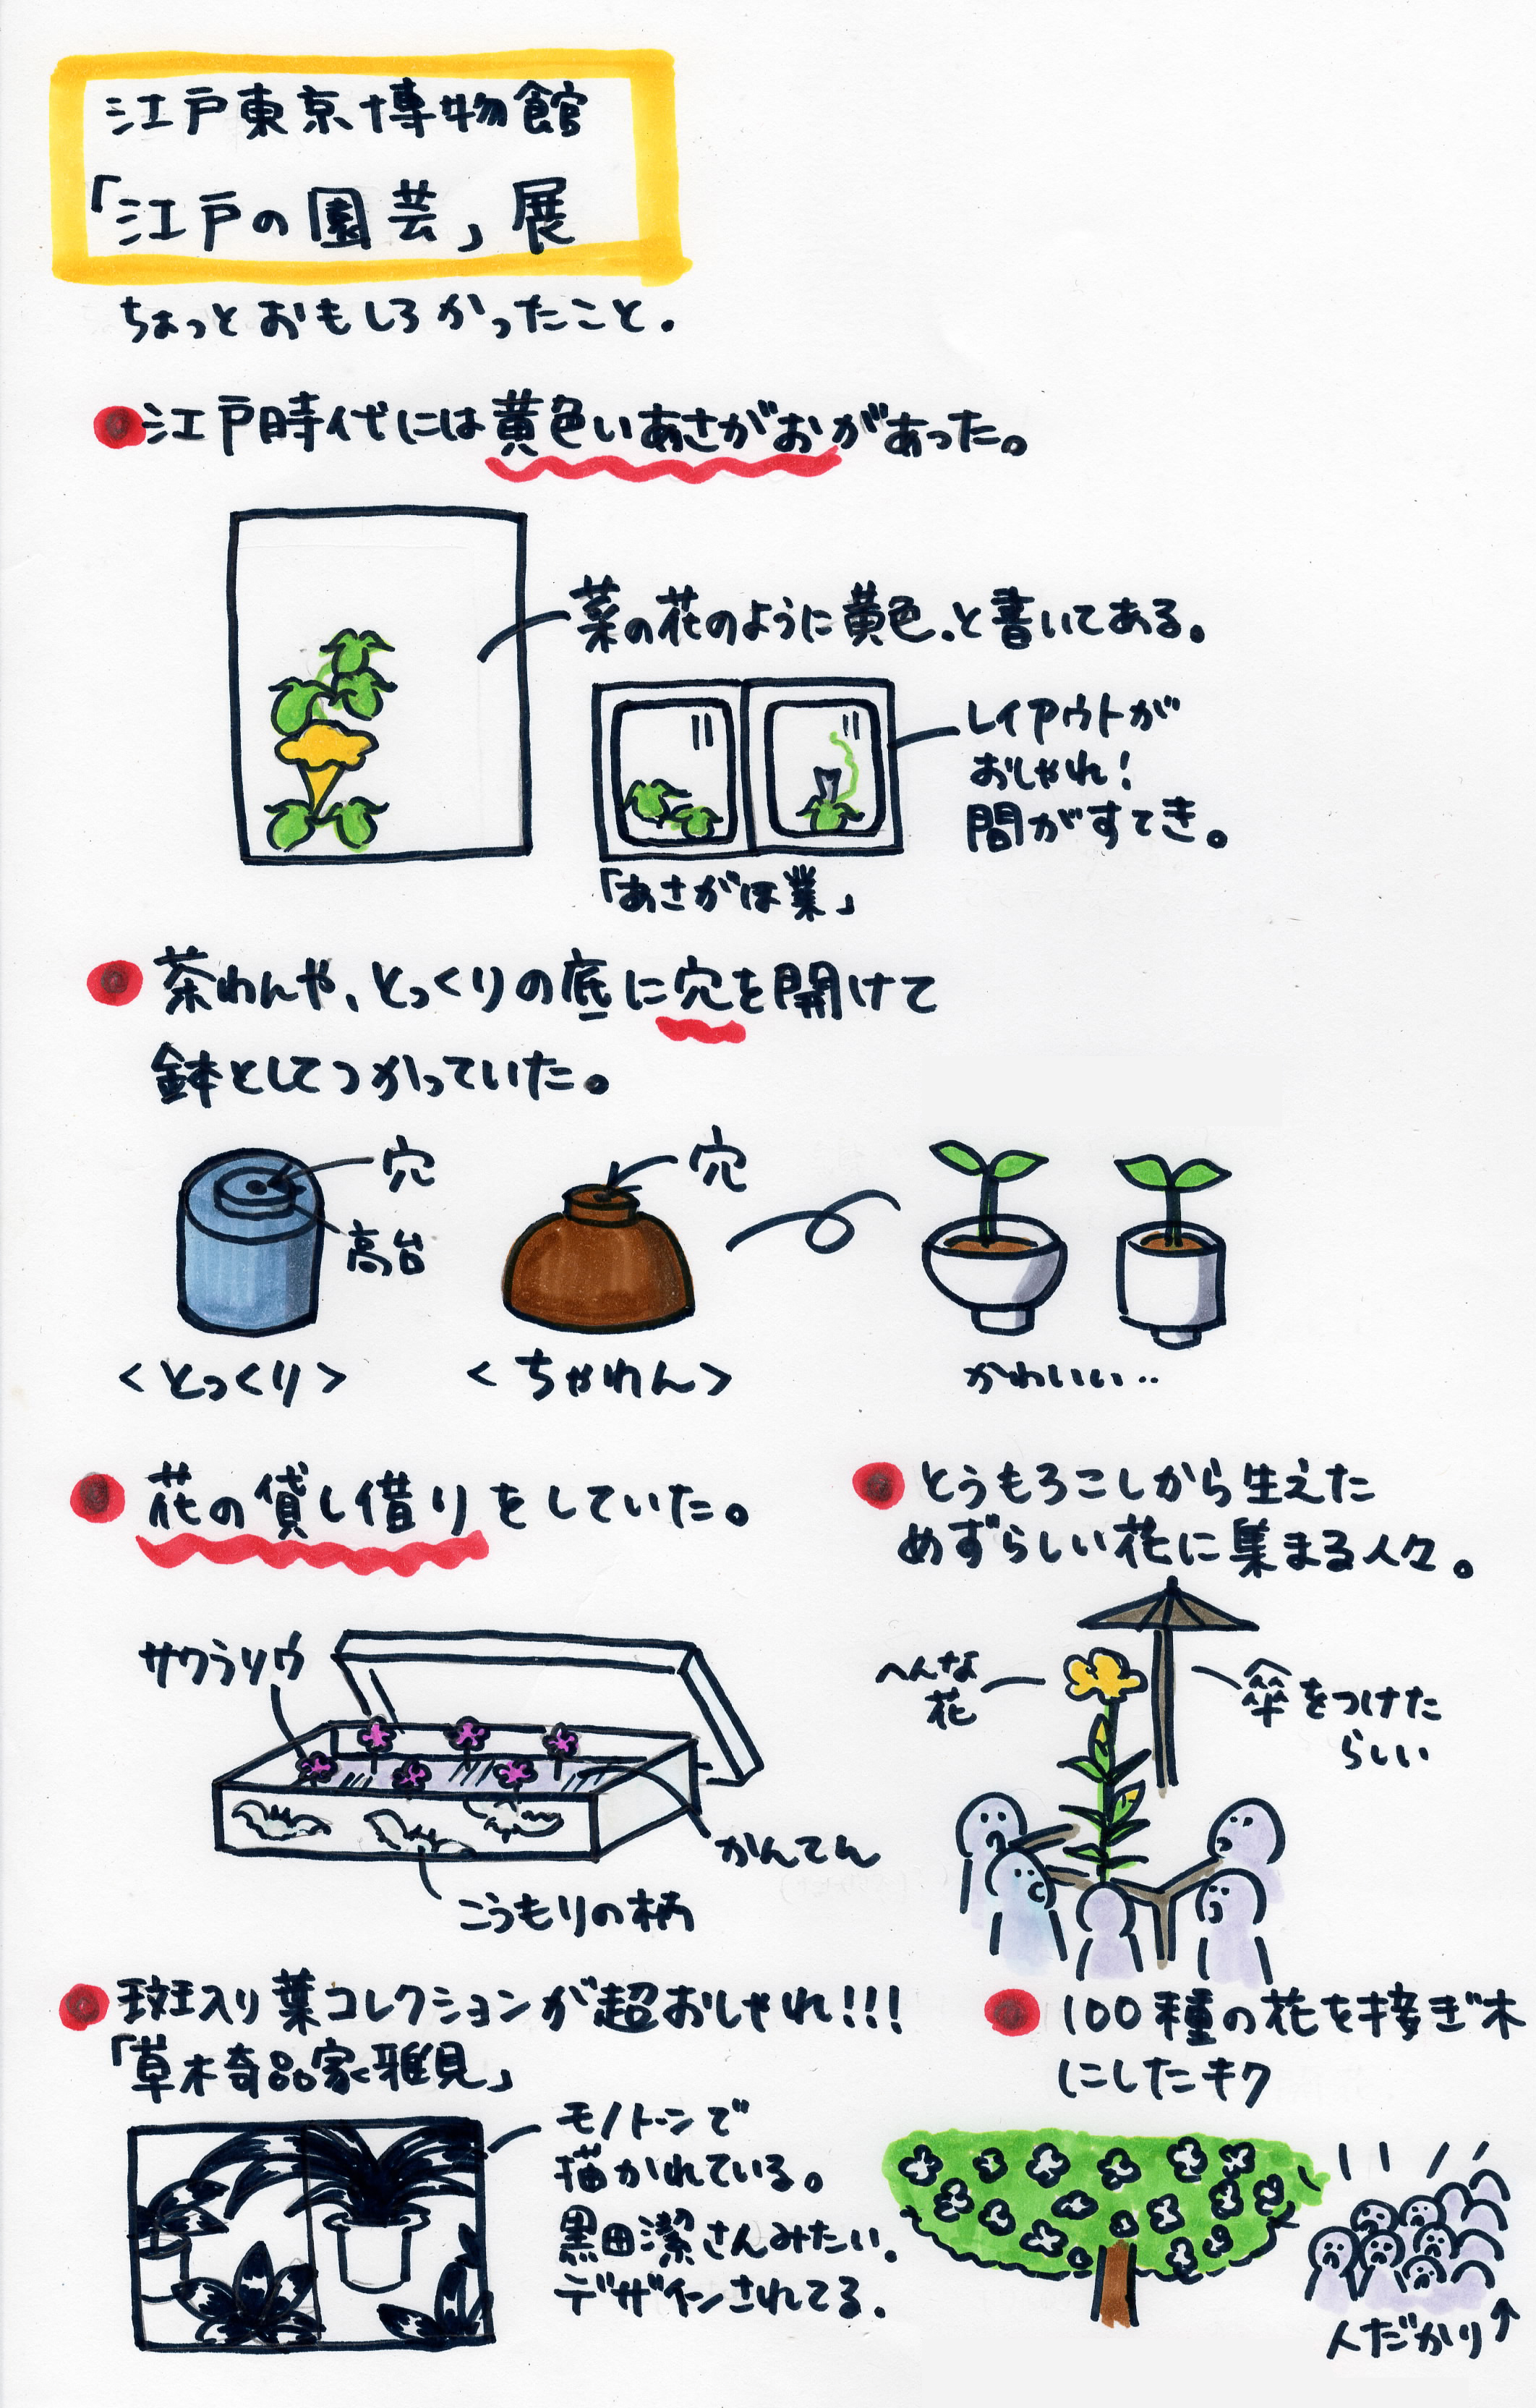 江戸東京博物館
「江戸の園芸」展
ちょっとおもしろかったこと.
江戸時代には黄色いあさがおがあった。
菜の花のように黄色.と書いてある。
レイアウトが
おしゃれ!
間がすてき。
「あさがほ業」
茶わんや、とっくりの底に穴を開けて
鉢としてつかっていた。
穴
高台
<とっくり>
穴
<ちゃわん>
かわいい..
花の貸し借りをしていた。
サクラソウ
かんてん
こうもりの柄
とうもろこしから生えた
めずらしい花に集まる人々。
へんな
花
傘をつけた
らしい
斑入り葉コレクションが超おしゃれ!!!
「草木奇品家雅見」
モノトーンで
描かれている。
黒田潔さんみたい.
デザインされてる.
100種の花を接ぎ木
にしたキク
人だかり↑